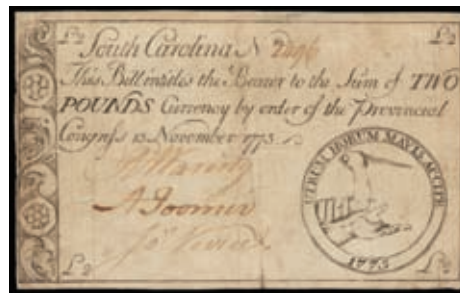 £2 £2
South Carolina N
This Bill intitles the Bearer to the Sum of TWO
POUNDS Currency by order of the Provincial
Congress 10 November 1775
UTRUM HORUM MAVIS ACCIPE
1775
£2 £2